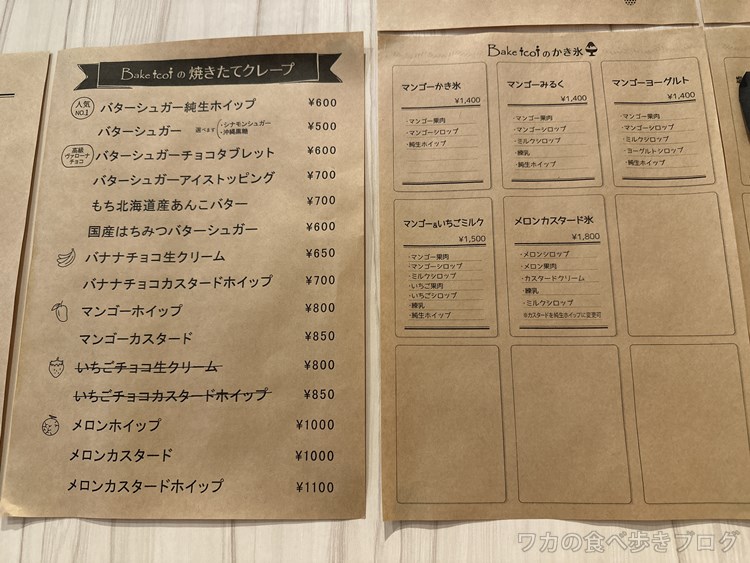 Bake icoi の 焼きたてクレープ
人気
NO.1
バターシュガー純生ホイップ ¥600
バターシュガー 選べます ・シナモンシュガー ・沖縄黒糖 ¥500
高級
ヴァローナ
チョコ
バターシュガーチョコタブレット ¥600
バターシュガーアイストッピング ¥700
もち北海道産あんこバター ¥700
国産はちみつバターシュガー ¥600
バナナチョコ生クリーム ¥650
バナナチョコカスタードホイップ ¥700
マンゴーホイップ ¥800
マンゴーカスタード ¥850
いちごチョコ生クリーム ¥800
いちごチョコカスタードホイップ ¥850
メロンホイップ ¥1000
メロンカスタード ¥1000
メロンカスタードホイップ ¥1100
Bake icoi のかき氷
マンゴーかき氷
¥1,400
・マンゴー果肉
・マンゴーシロップ
・純生ホイップ
マンゴーみるく
¥1,400
・マンゴー果肉
・マンゴーシロップ
・ミルクシロップ
・練乳
・純生ホイップ
マンゴーヨーグルト
¥1,400
・マンゴー果肉
・マンゴーシロップ
・ミルクシロップ
・ヨーグルトシロップ
・純生ホイップ
マンゴー&いちごミルク
¥1,500
・マンゴー果肉
・マンゴーシロップ
・ミルクシロップ
・いちご果肉
・いちごシロップ
・練乳
・純生ホイップ
メロンカスタード氷
¥1,800
・メロンシロップ
・メロン果肉
・カスタードクリーム
・練乳
・ミルクシロップ
※カスタードを純生ホイップに変更可
ワカの食べ歩きブログ